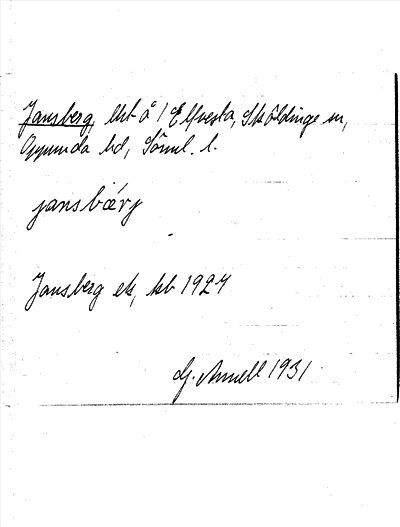 Jansberg, lht å 1 Elfvesta, Sköldinge sn,
Oppunda hd, Söml. l.
jansbærj
Jansberg ek, kb 1927
G. Annell 1931